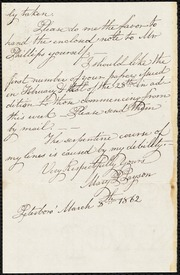 ly taken.
Please do me the favor to
hand the enclosed note to Mr
Phillips yourself.
I should like the
first number of your paper, issued
in February & that of the 28th in ad-
dition to those commencing from
this week. Please send them
by mail.
The serpentine course of
my lines is caused by my debility.
Very Respectfully Yours
Mary
Peterboro March 8th 1862